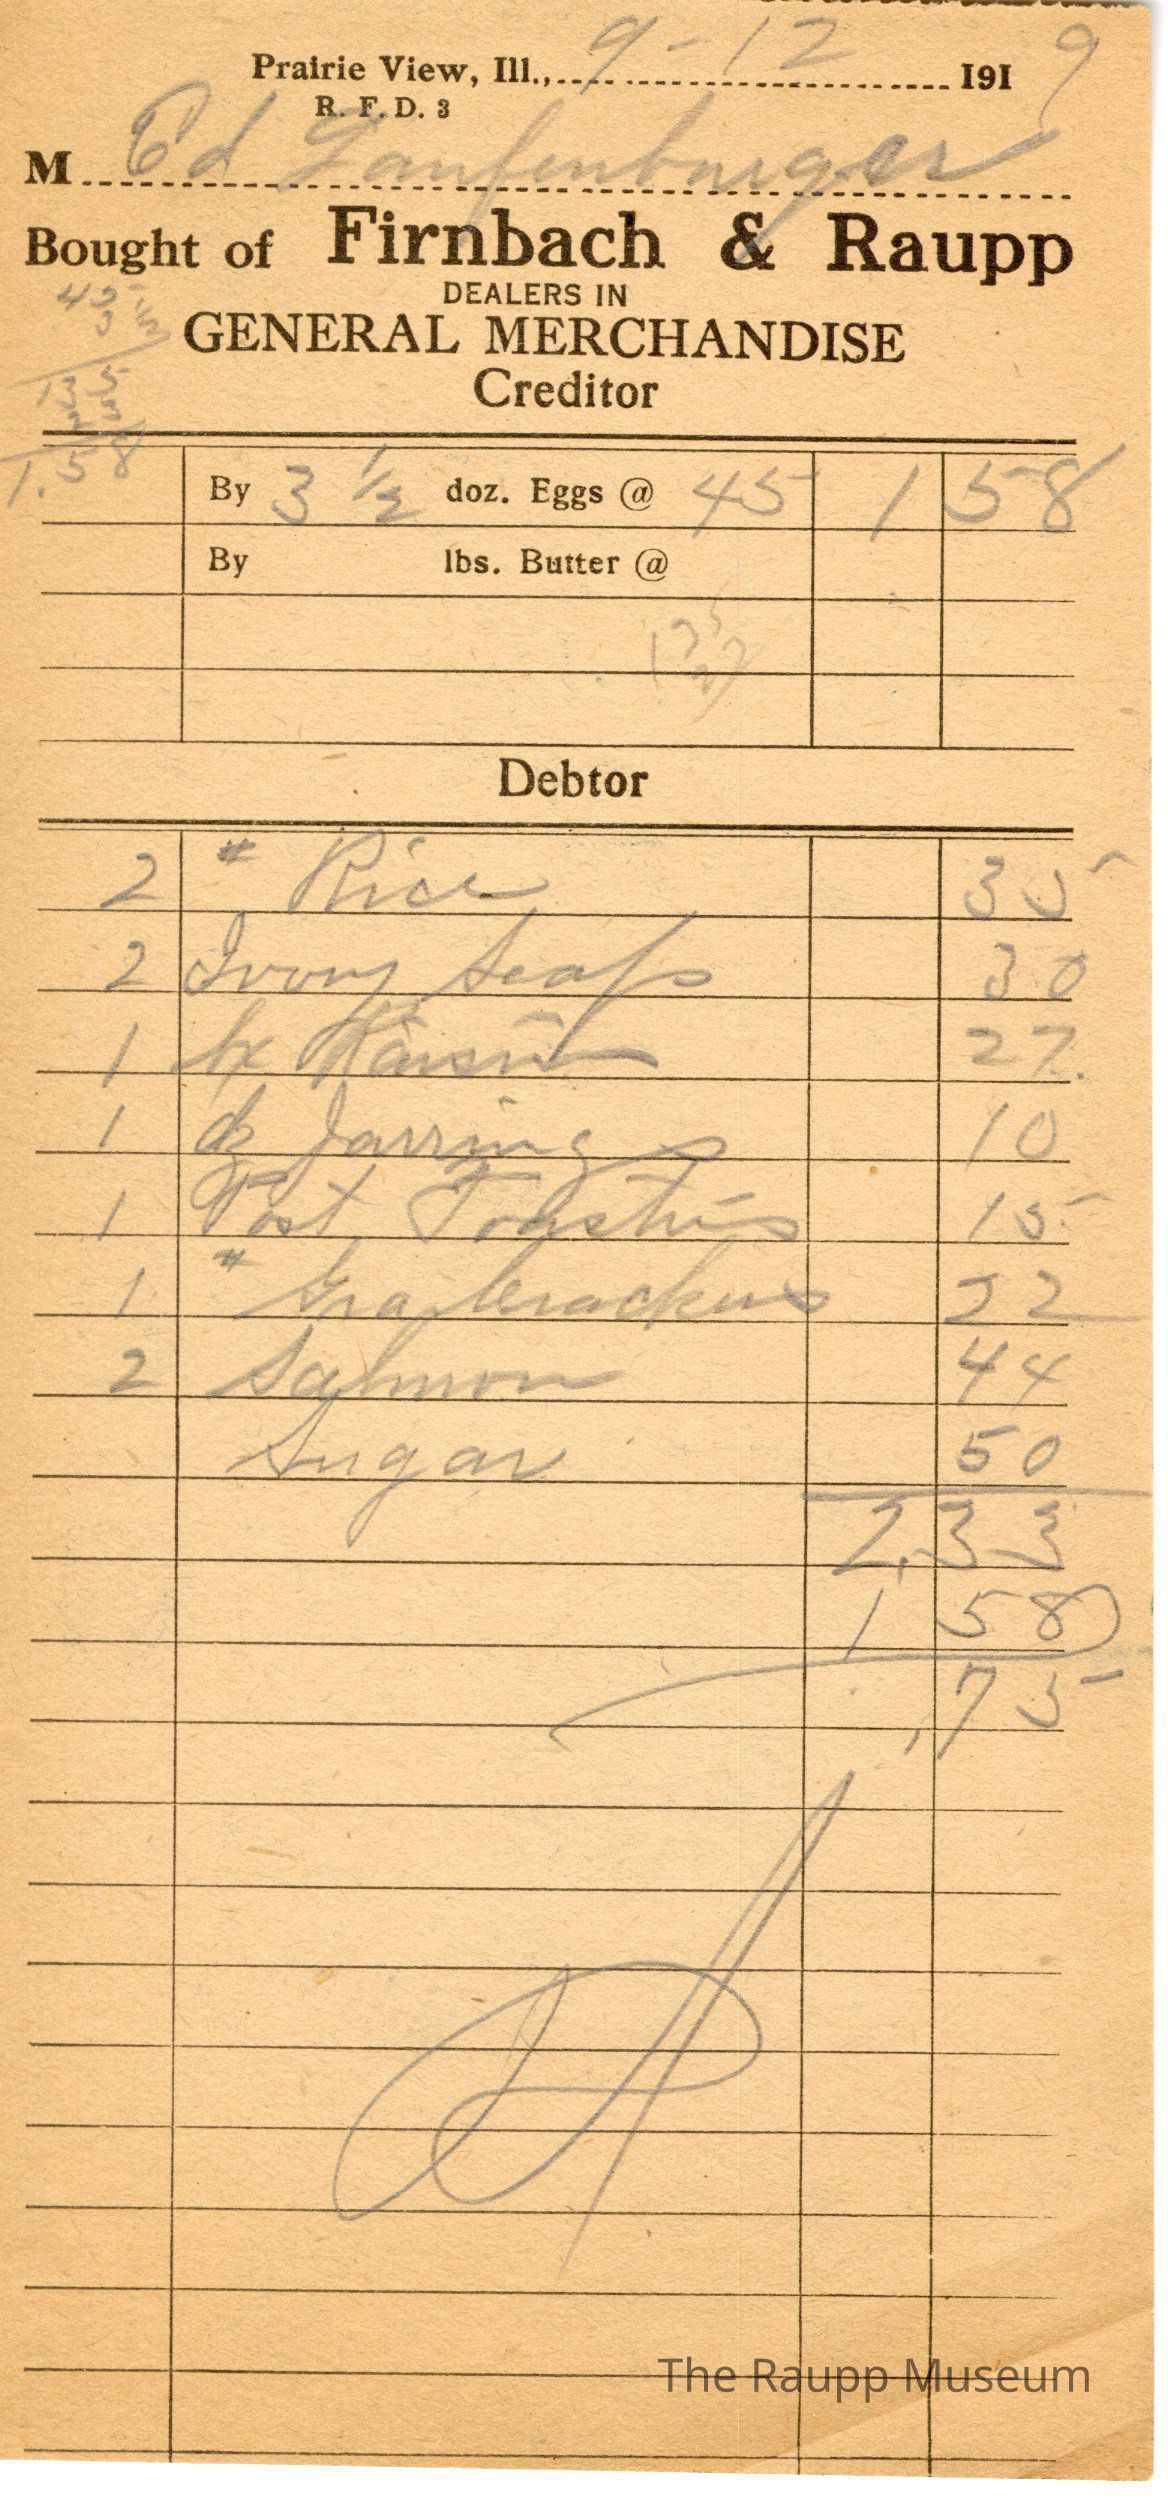 Prairie View, Ill., 9-12 1919
R. F. D. 3
M Ed Laufenburger
Bought of Firnbach & Raupp
DEALERS IN
GENERAL MERCHANDISE
Creditor
45
3 1/2
135
23
1.58
By 3 1/2 doz. Eggs @ 45 1 58
By lbs. Butter @
Debtor
2 # Rice 35
2 Ivory Soaps 30
1 bx Raisin 27.
1 dz Jarrings 10
1 Post Toasties 15
1 # Gra Crackers 22
2 Salmon 44
Sugar 50
2,33
1 58
,75
The Raupp Museum